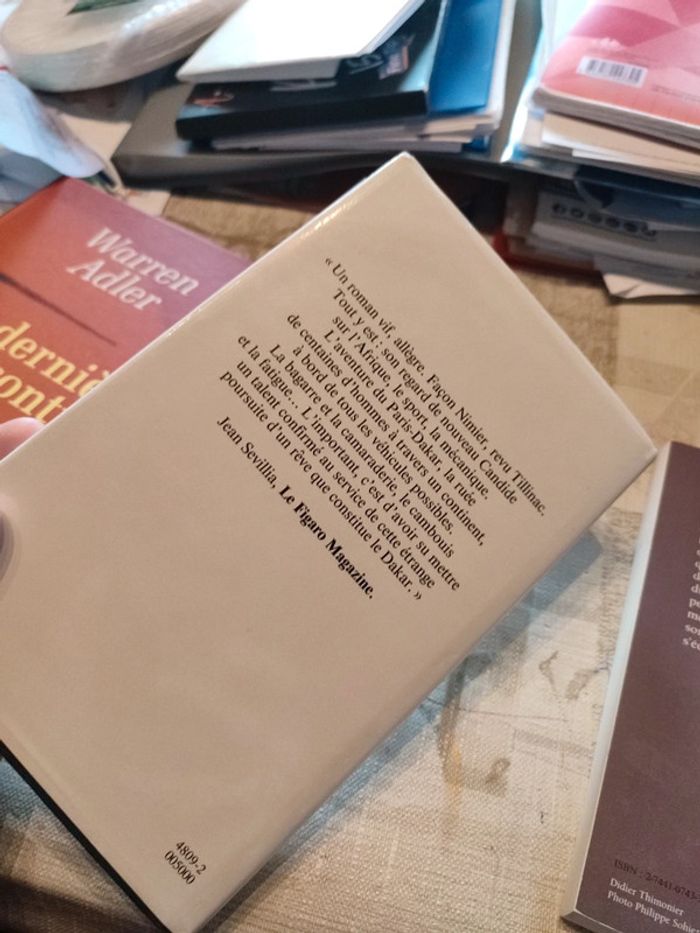 Warren
Adler
derniè
cont
« Un roman vif, allègre. Façon Nimier, revu Tillinac.
Tout y est : son regard de nouveau Candide
sur l'Afrique, le sport, la mécanique.
L'aventure du Paris-Dakar, la ruée
de centaines d'hommes à travers un continent,
à bord de tous les véhicules possibles.
La bagarre et la camaraderie, le cambouis
et la fatigue... L'important, c'est d'avoir su mettre
un talent confirmé au service de cette étrange
poursuite d'un rêve que constitue le Dakar. »
Jean Sevillia, Le Figaro Magazine.
4809-2
005000
ISBN : 2-7441-0743-
Didier Thimonier
Photo Philippe